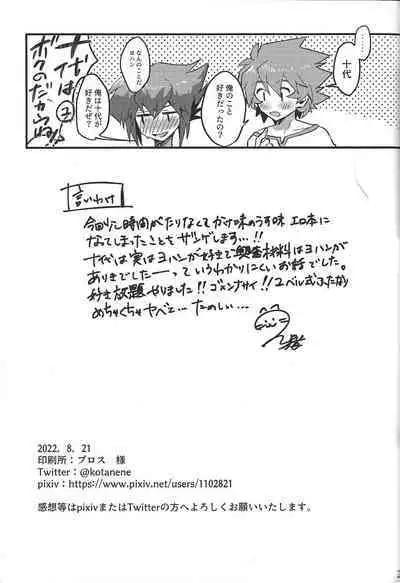 ………
十代
俺のこと
好きだったの？
なんのことだ
ヨハン
俺は十代が
好きだぜ？
十代は
ボクのだからね!!
言いわけ
今回りに時間がたりなくて
うす味 エロ本に
なってしまったことを ザンゲします…!!
十代は実はヨハンが好きで興奮材料はヨハンが
ありきでした――っていうわかりにくいお話でした。
好き放題やりました!! ゴメンナサイ!! ユベル式ふたなり
めちゃくちゃヤベェと…たのしい…
2022. 8. 21
印刷所：ブロス 様
Twitter：@kotanene
pixiv：https://www.pixiv.net/users/1102821
感想等はpixivまたはTwitterの方へよろしくお願いいたします。